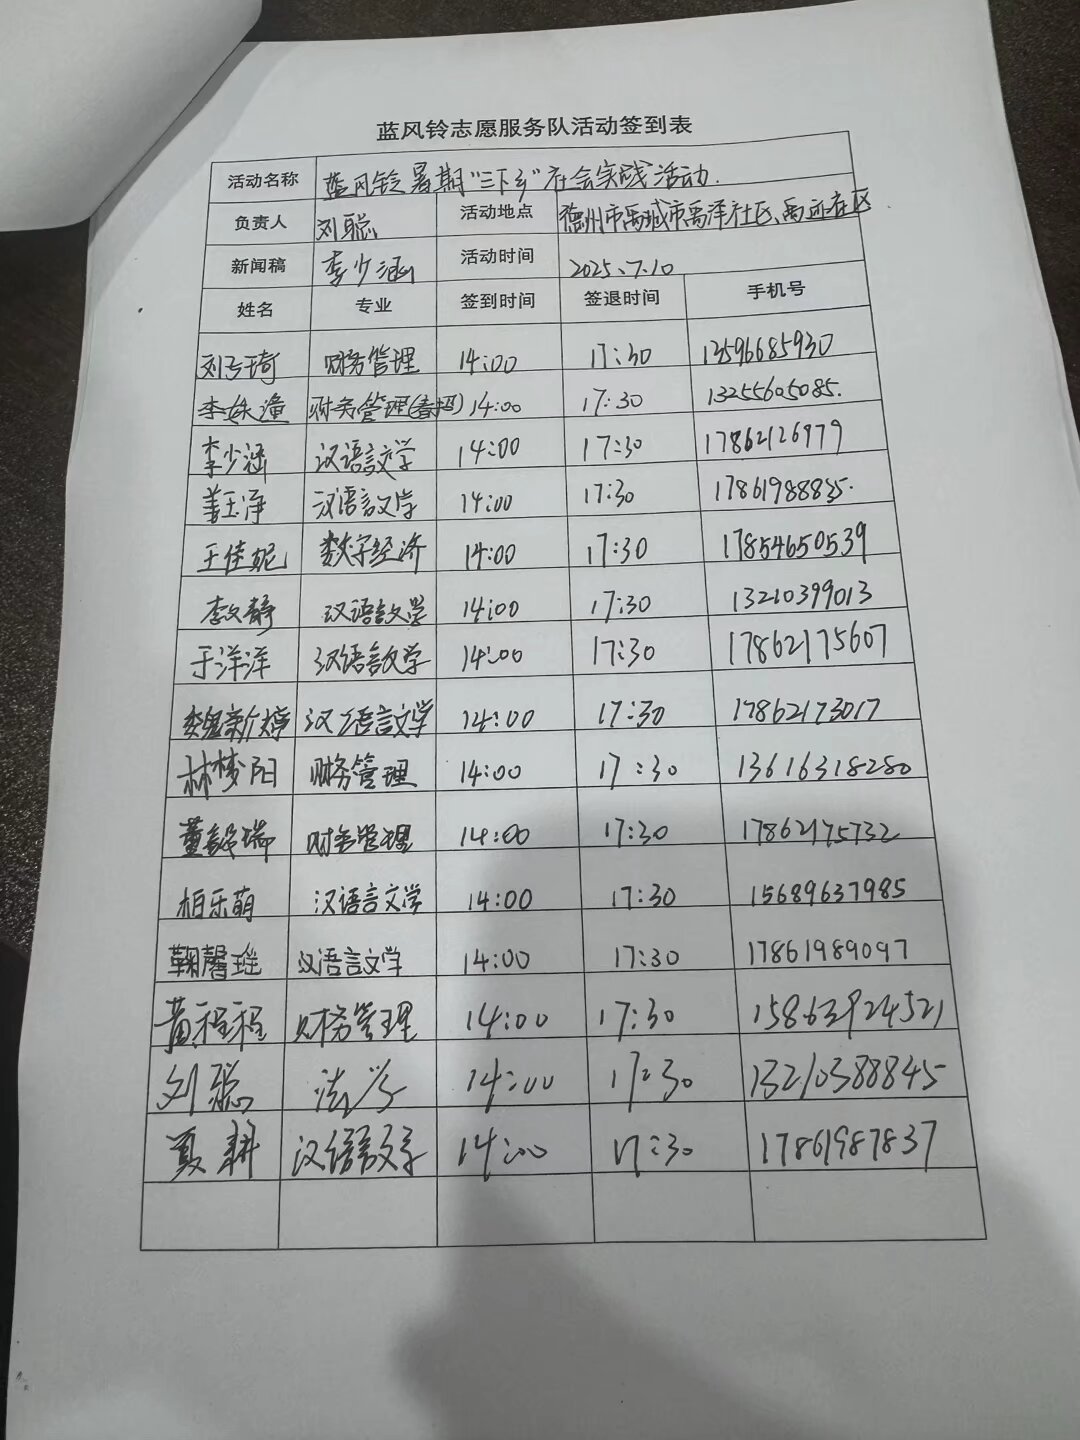 蓝风铃志愿服务队活动签到表
活动名称 蓝风铃暑期“三下乡”社会实践活动.
负责人 刘聪 活动地点 德州市禹城市禹泽社区、禹 社区
新闻稿 李少涵 活动时间 2025.7.10
姓名 专业 签到时间 签退时间 手机号
刘 琦 财务管理 14:00 17:30 13596685930
李 潼 财务管理(春招) 14:00 17:30 13255605085.
李少涵 汉语言文学 14:00 17:30 17862126979
姜玉净 汉语言文学 14:00 17:30 17861988835.
王佳妮 数字经济 14:00 17:30 17854650539
李文静 汉语言文学 14:00 17:30 13210399013
于洋洋 汉语言文学 14:00 17:30 17862175607
魏新婷 汉语言文学 14:00 17:30 17862173017
林梦阳 财务管理 14:00 17:30 13616318280
董 瑞 财务管理 14:00 17:30 17862175732
柏乐萌 汉语言文学 14:00 17:30 15689637985
鞠馨瑶 汉语言文学 14:00 17:30 17861989097
黄程程 财务管理 14:00 17:30 15863924521
刘聪 法学 14:00 17:30 13210388845
夏耕 汉语言文学 14:00 17:30 17861987837